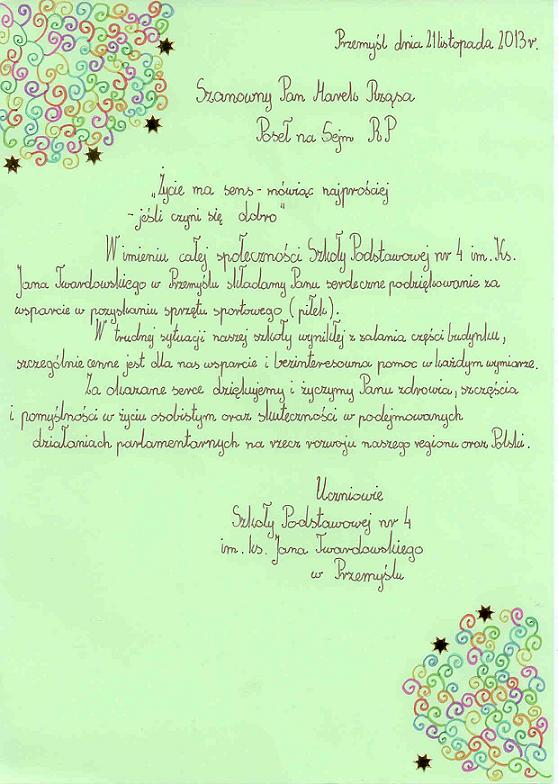 Przemyśl dnia 21 listopada 2013 r.
Szanowny Pan Marek Rząsa
Poseł na Sejm RP
„Życie ma sens - mówiąc najprościej
- jeśli czyni się dobro"
W imieniu całej społeczności Szkoły Podstawowej nr 4 im. Ks.
Jana Twardowskiego w Przemyślu składamy Panu serdeczne podziękowanie za
wsparcie w pozyskaniu sprzętu sportowego (piłek).
W trudnej sytuacji naszej szkoły wynikłej z zalania części budynku,
szczególnie cenne jest dla nas wsparcie i bezinteresowna pomoc w każdym wymiarze.
Za okazane serce dziękujemy i życzymy Panu zdrowia, szczęścia
i pomyślności w życiu osobistym oraz skuteczności w podejmowanych
działaniach parlamentarnych na rzecz rozwoju naszego regionu oraz Polski.
Uczniowie
Szkoły Podstawowej nr 4
im. ks. Jana Twardowskiego
w Przemyślu